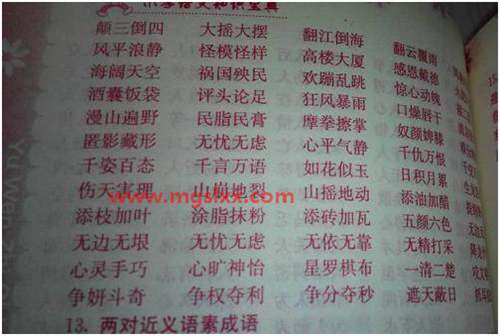 小学语文知识宝典
颠三倒四 大摇大摆 翻江倒海 翻云覆雨
风平浪静 怪模怪样 高楼大厦 感恩戴德
海阔天空 祸国殃民 欢蹦乱跳 惊心动魄
酒囊饭袋 评头论足 狂风暴雨 口燥唇干
漫山遍野 民脂民膏 摩拳擦掌 奴颜婢膝
匿影藏形 无忧无虑 心平气静 千仇万恨
千姿百态 千言万语 如花似玉 日积月累
伤天害理 山崩地裂 山摇地动 添油加醋
添枝加叶 涂脂抹粉 添砖加瓦 五颜六色
无边无垠 无忧无虑 无依无靠 无精打采
心灵手巧 心旷神怡 星罗棋布 一清二楚
争妍斗奇 争权夺利 争分夺秒 遮天蔽日
13. 两对近义语素成语
www.mgshxx.com